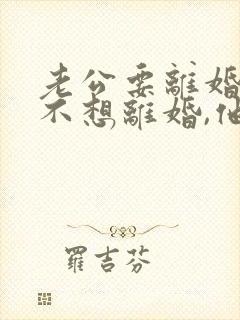 老公要離婚
不想離婚,他
羅吉芬